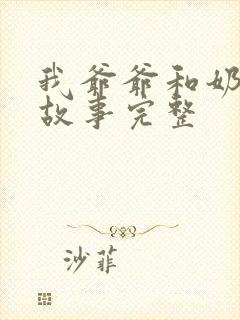 我爷爷和奶
故事完整
沙菲